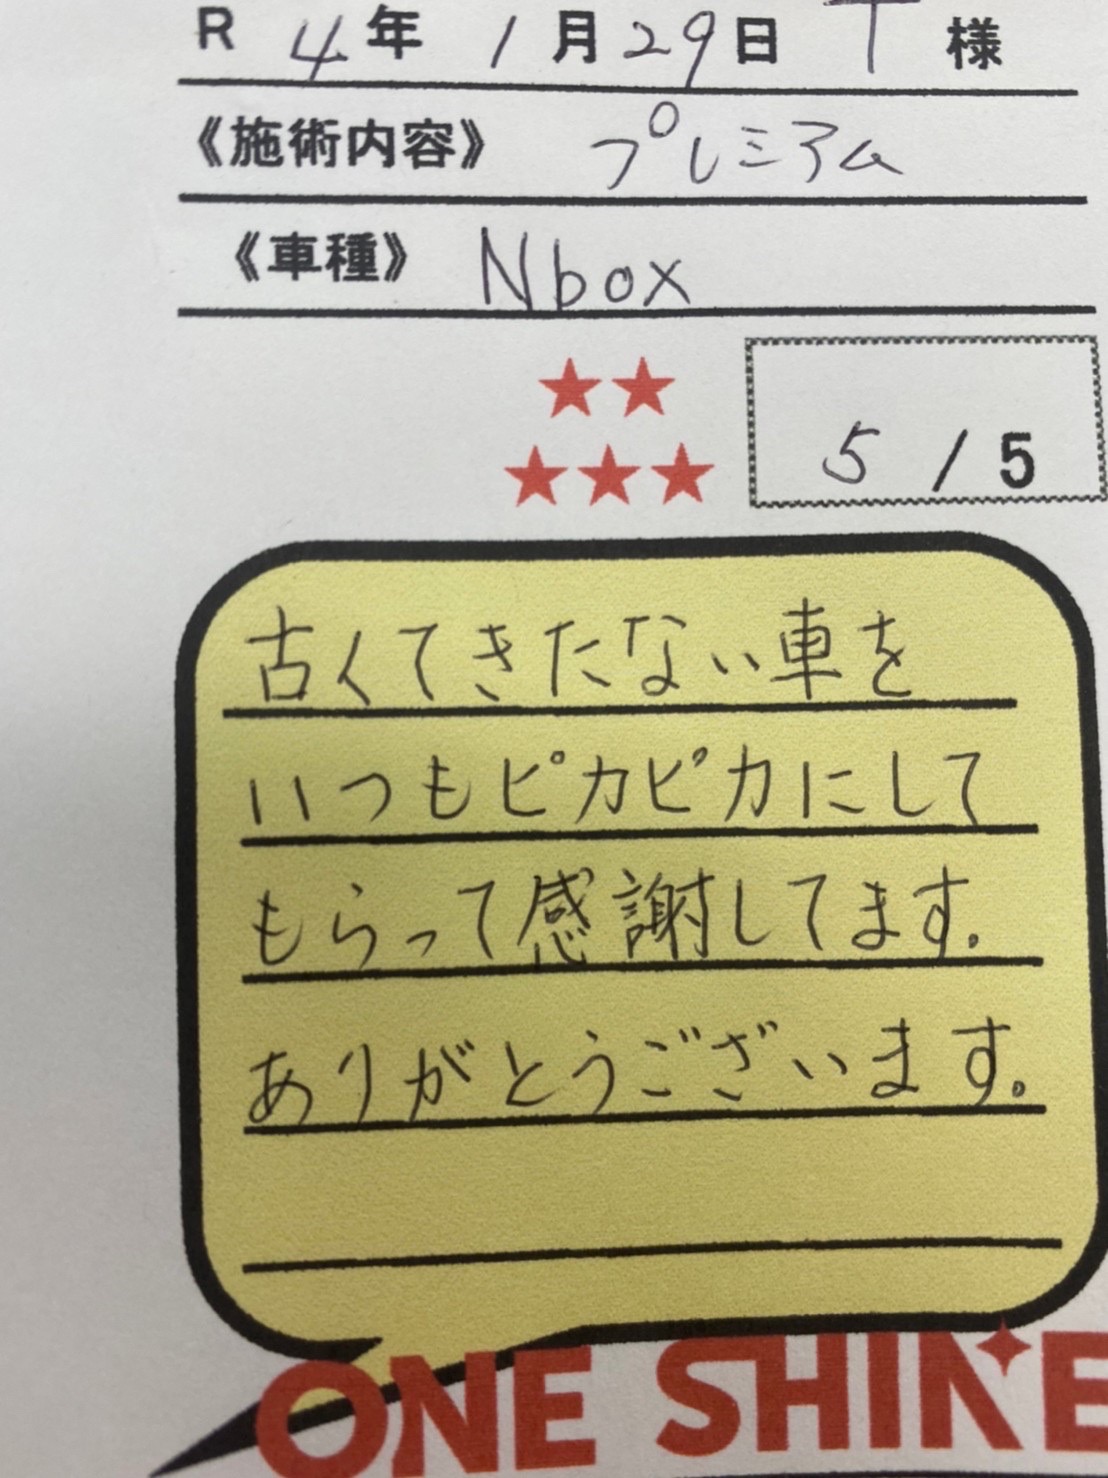 R 4年 1月29日 T 様
《施術内容》 プレミアム
《車種》 Nbox
★★
★★★
5 / 5
古くてきたない車を
いつもピカピカにして
もらって感謝してます。
ありがとうございます。
ONE SHINE